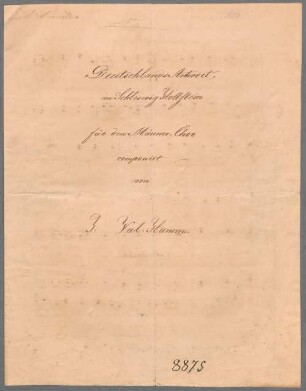 Deutschlands Antwort,
an Schleswig Holstein
für den Männer-Chor
componirt
von
J. Val. Hamm.
8875